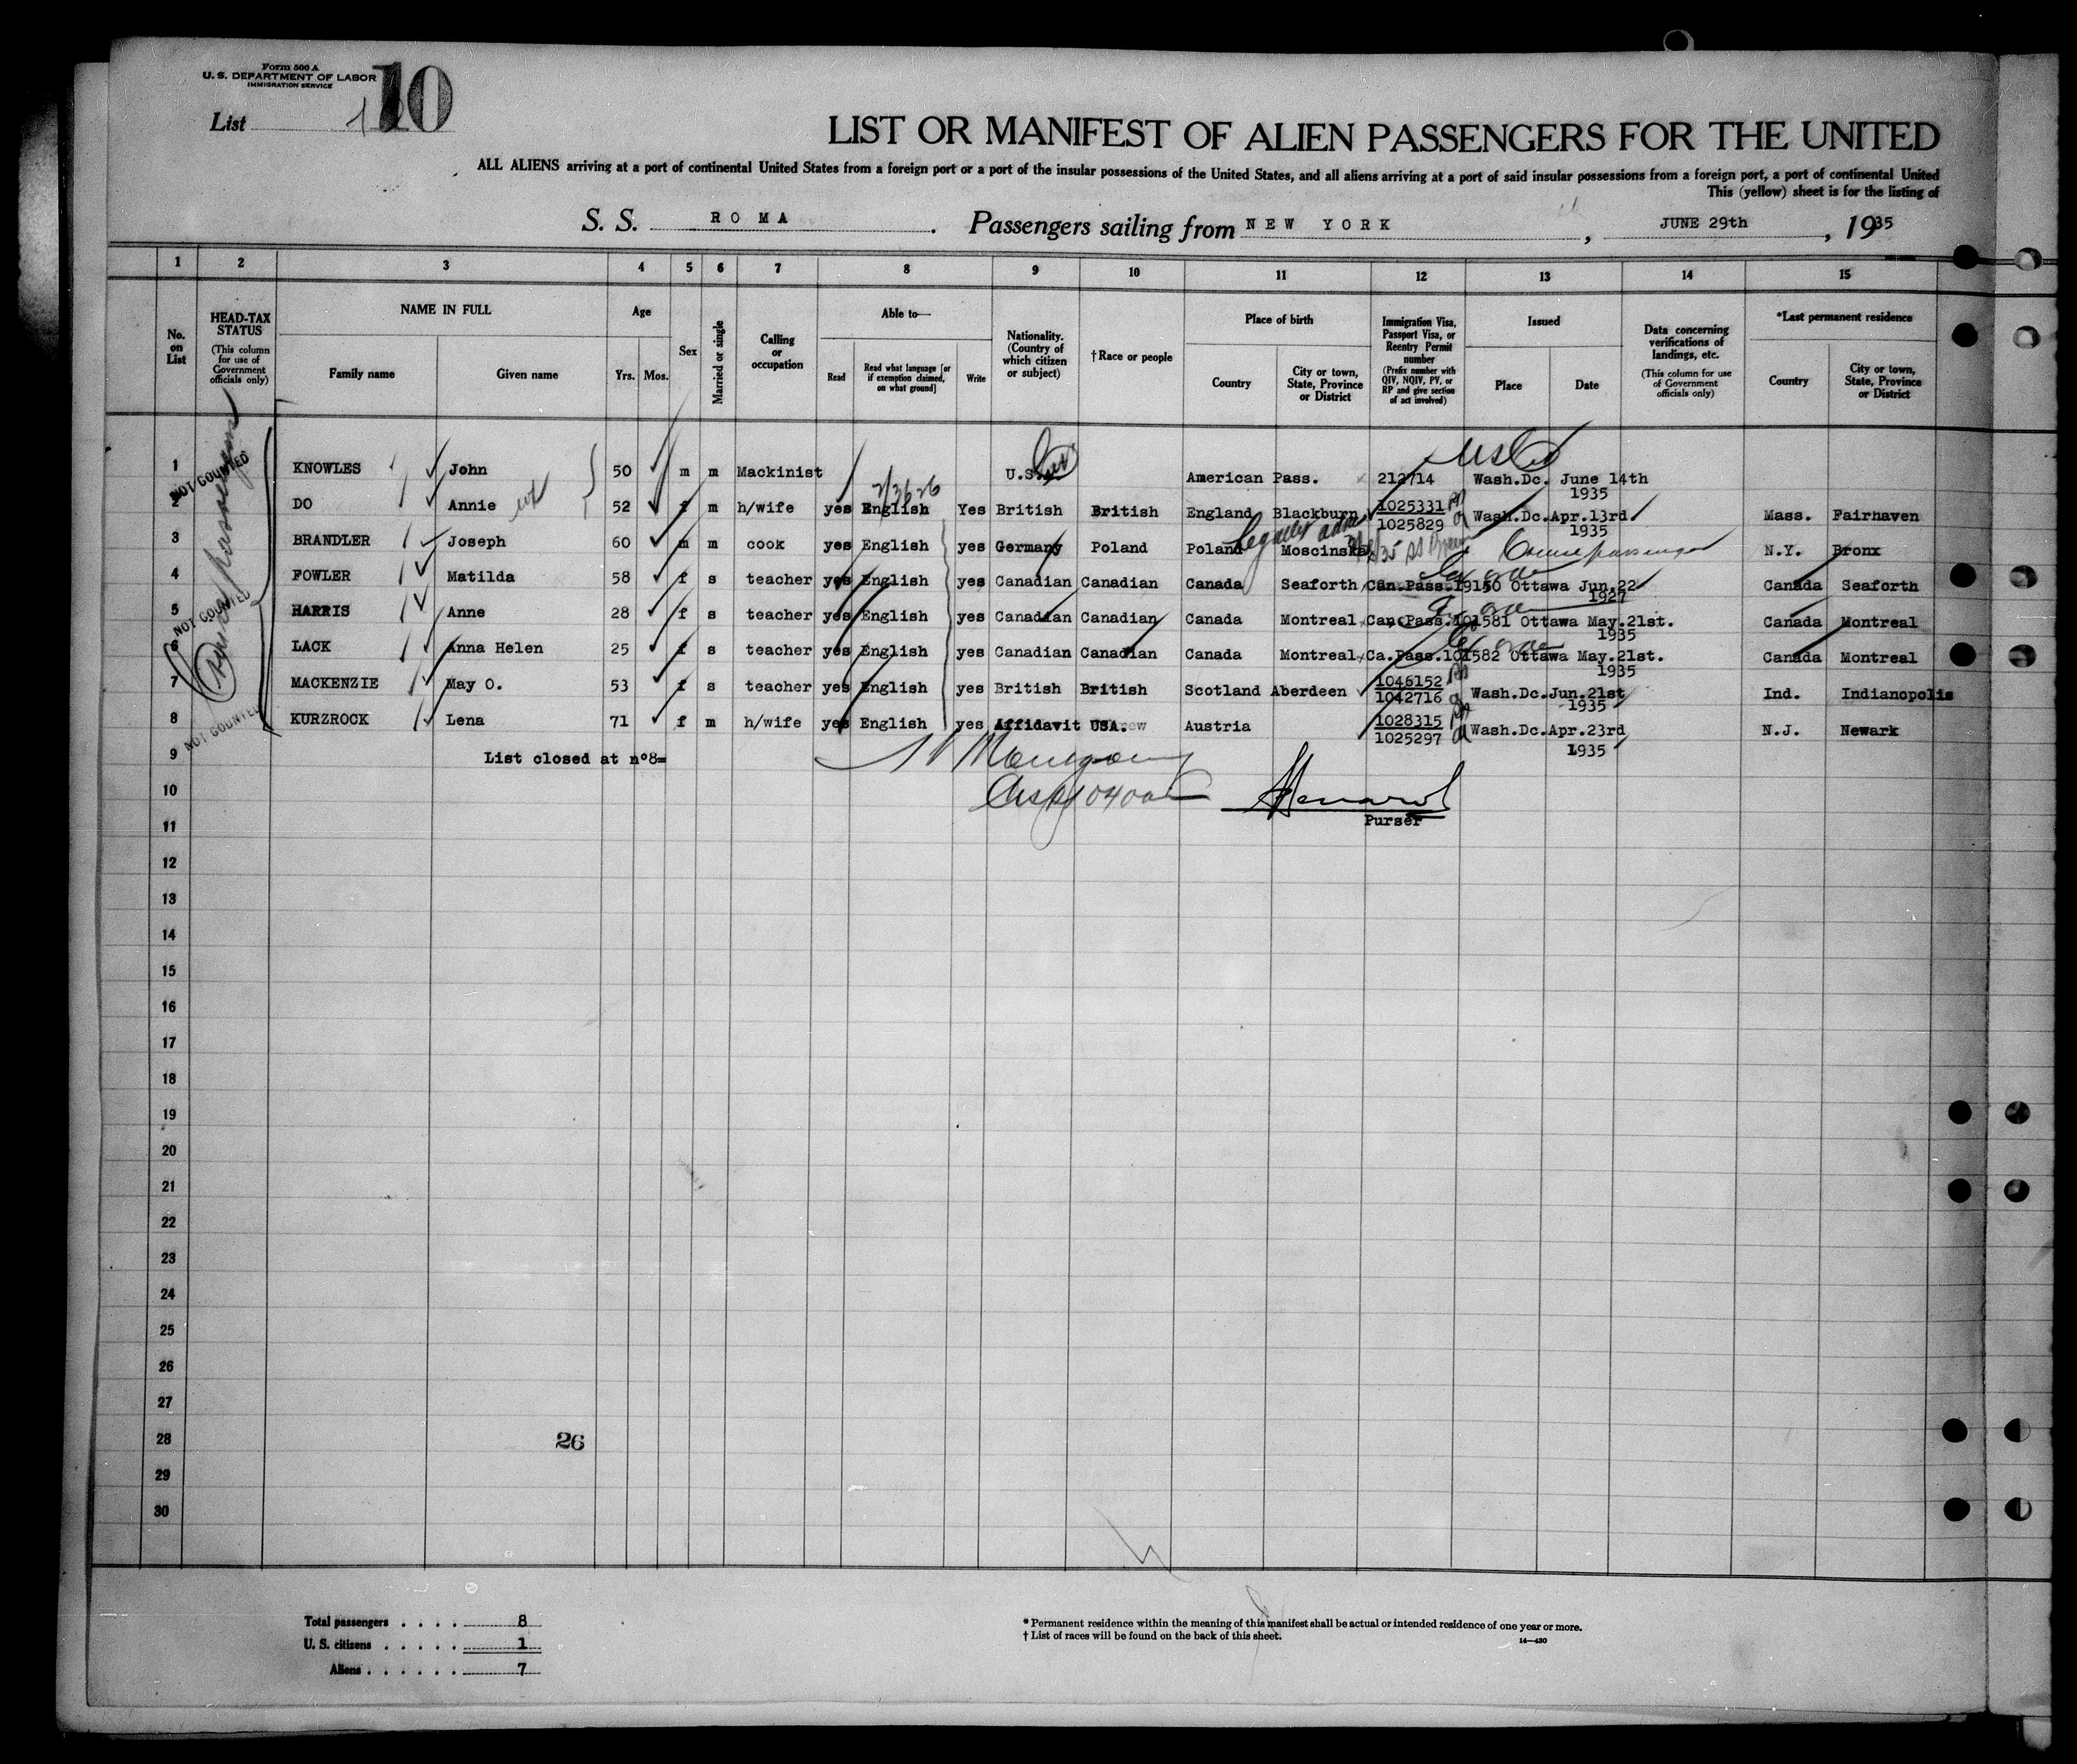 Form 500 A
U. S. DEPARTMENT OF LABOR
IMMIGRATION SERVICE
List 10
LIST OR MANIFEST OF ALIEN PASSENGERS FOR THE UNITED
ALL ALIENS arriving at a port of continental United States from a foreign port or a port of the insular possessions of the United States, and all aliens arriving at a port of said insular possessions from a foreign port, a port of continental United
This (yellow) sheet is for the listing of
S. S. ROMA. Passengers sailing from NEW YORK, JUNE 29th, 1935
1 2 3 4 5 6 7 8 9 10 11 12 13 14 15
No. on List
HEAD-TAX STATUS
(This column for use of Government officials only)
NAME IN FULL
Family name Given name
Age
Yrs. Mos.
Sex
Married or single
Calling or occupation
Able to—
Read
Read what language [or if exemption claimed, on what ground]
Write
Nationality. (Country of which citizen or subject)
†Race or people
Place of birth
Country
City or town, State, Province or District
Immigration Visa, Passport Visa, or Reentry Permit number
(Prefix number with QIV, NQIV, PV, or RP and give section of act involved)
Issued
Place Date
Data concerning verifications of landings, etc.
(This column for use of Government officials only)
*Last permanent residence
Country
City or town, State, Province or District
NOT COUNTED
1 KNOWLES John 50 m m Mackinist U.S. American Pass. 212714 Wash.Dc. June 14th 1935
2 DO Annie 52 f m h/wife yes English Yes British British England Blackburn 1025331 1025829 Wash.Dc.Apr.13rd 1935 Mass. Fairhaven
3 BRANDLER Joseph 60 m m cook yes English yes Germany Poland Poland Moscinska Cruise passenger N.Y. Bronx
Legally adm
4 FOWLER Matilda 58 f s teacher yes English yes Canadian Canadian Canada Seaforth Can.Pass.19150 Ottawa Jun.22 1927 Canada Seaforth
NOT COUNTED
5 HARRIS Anne 28 f s teacher yes English yes Canadian Canadian Canada Montreal Can.Pass.101581 Ottawa May.21st. 1935 Canada Montreal
6 LACK Anna Helen 25 f s teacher yes English yes Canadian Canadian Canada Montreal Ca.Pass.101582 Ottawa May.21st. 1935 Canada Montreal
7 MACKENZIE May O. 53 f s teacher yes English yes British British Scotland Aberdeen 1046152 1042716 Wash.Dc.Jun.21st 1935 Ind. Indianopolis
NOT COUNTED
8 KURZROCK Lena 71 f m h/wife yes English yes Affidavit USA. Austria 1028315 1025297 Wash.Dc.Apr.23rd 1935 N.J. Newark
9 List closed at nº8=
10
11 Purser
12
13
14
15
16
17
18
19
20
21
22
23
24
25
26
27
28 26
29
30
Total passengers . . . . 8
U. S. citizens . . . . . 1
Aliens . . . . . . 7
* Permanent residence within the meaning of this manifest shall be actual or intended residence of one year or more.
† List of races will be found on the back of this sheet.
14—430